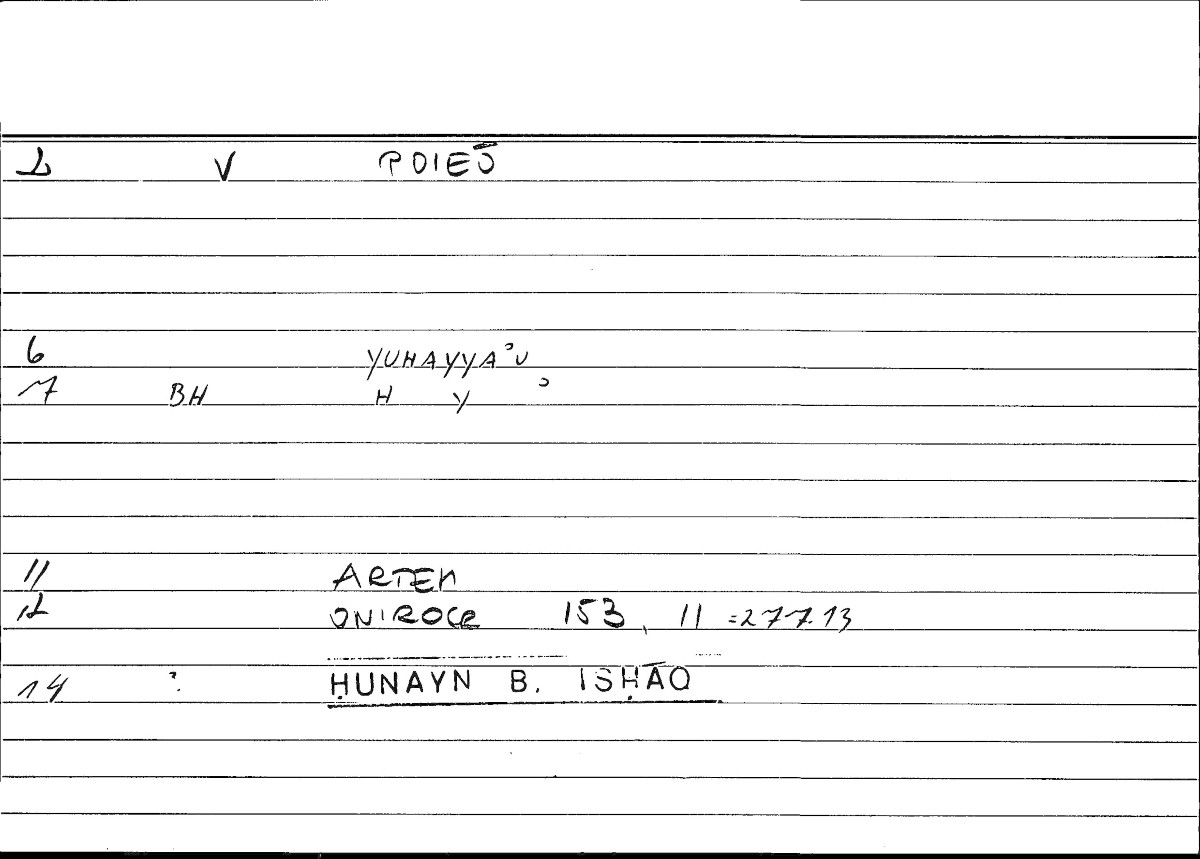 2 V POIEŌ
6 YUHAYYAʾU
7 BH H Y ʾ
11 ARTEM
12 ONIROCR 153, 11 =277.13
14 ? ḤUNAYN B. ISḤĀQ